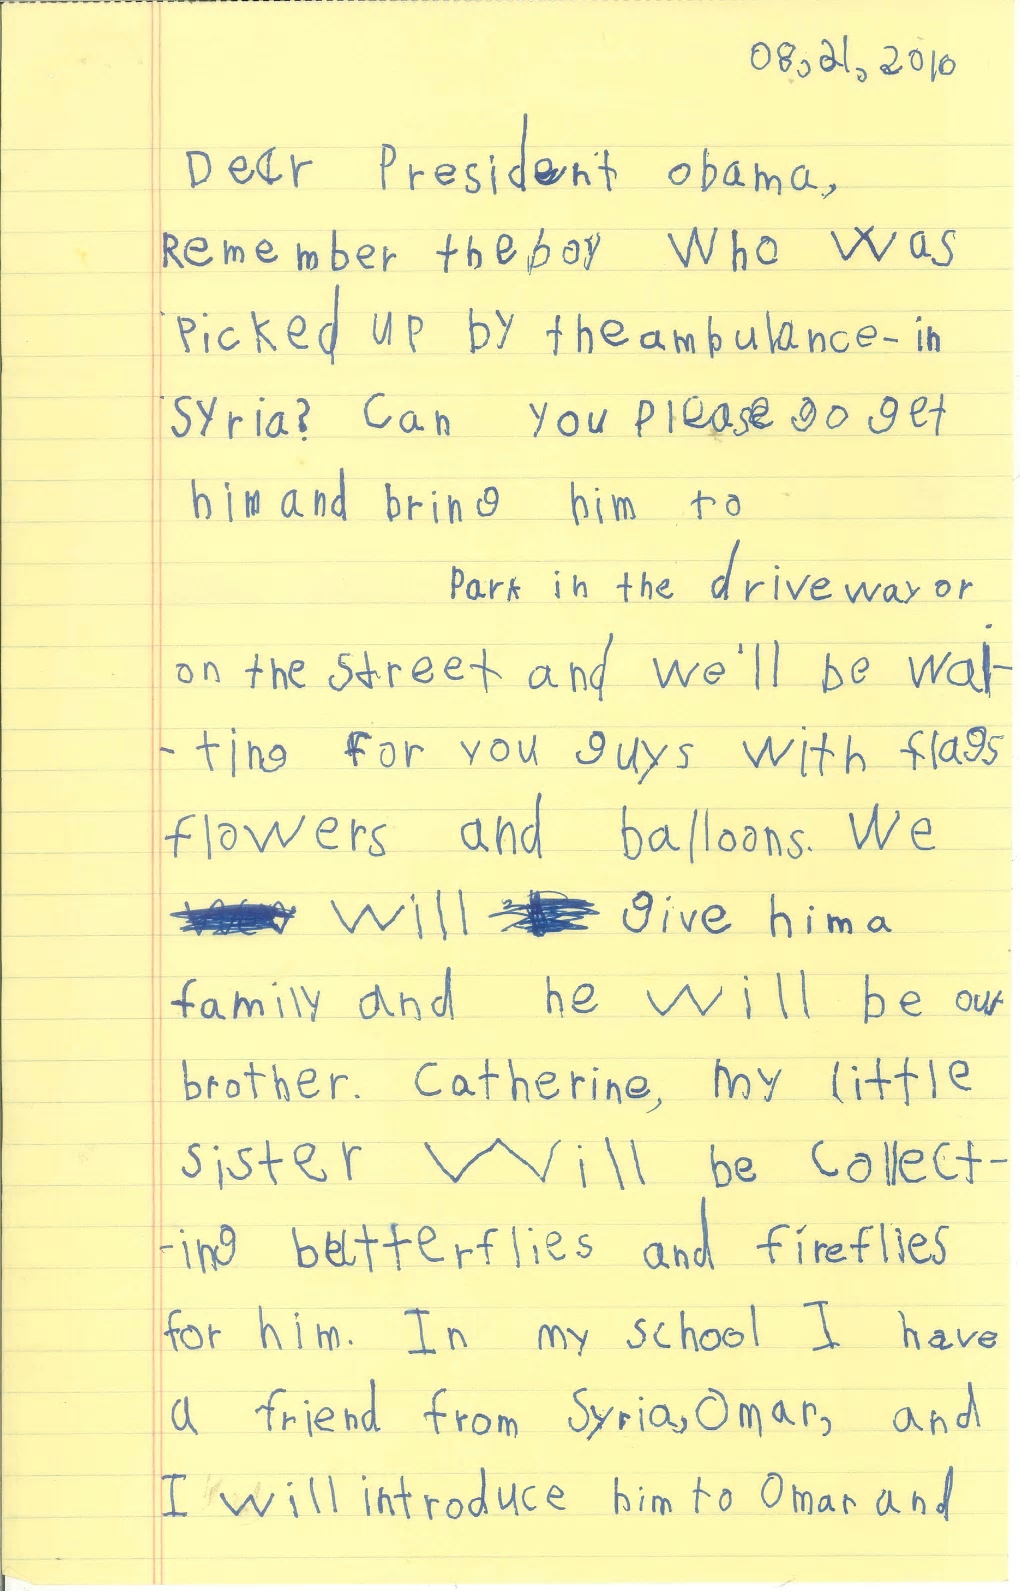 08, 21, 2010
Dear President obama,
Remember the boy Who Was
Picked up by the ambulance-in
Syria? Can you Please go get
him and bring him to
Park in the driveway or
on the street and we'll be wai-
-ting for you guys with flags
flowers and balloons. We
will give him a
family and he will be our
brother. Catherine, my little
sister will be collect-
-ing butterflies and fireflies
for him. In my school I have
a friend from Syria, Omar, and
I will introduce him to Omar and